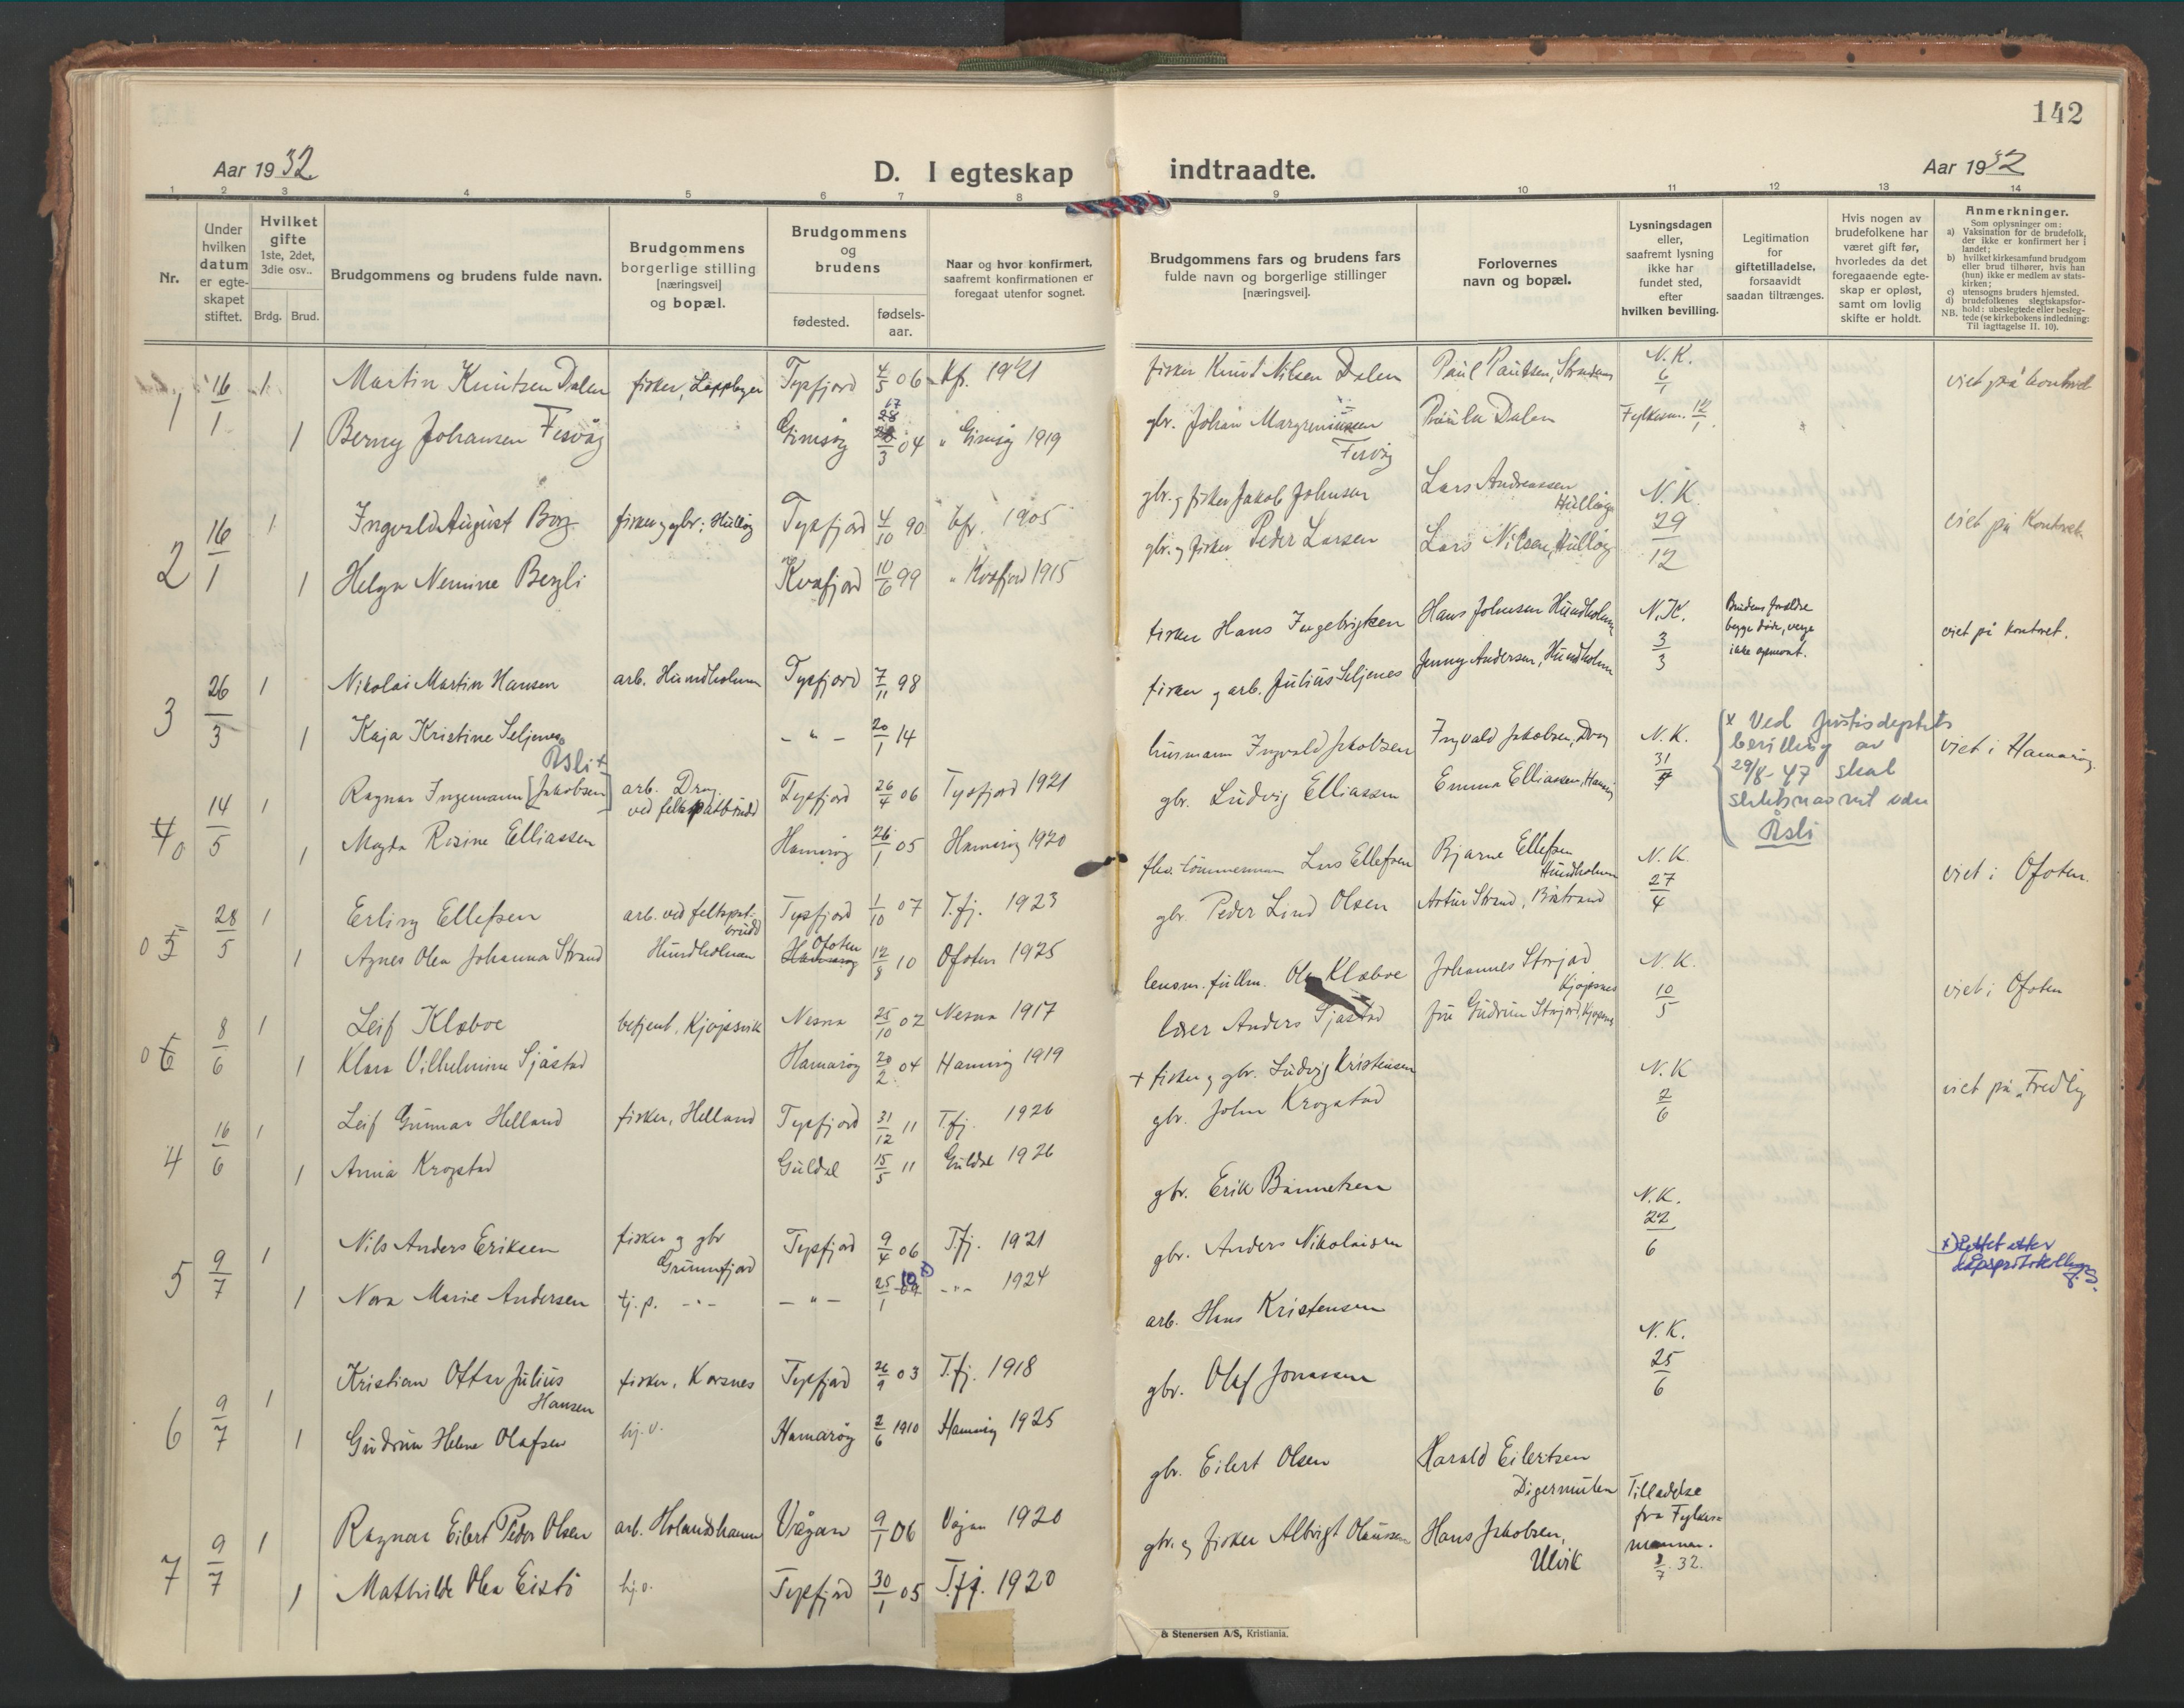 142
Aar 1932
D. I egteskap indtraadte.
Aar 1932
1 2 3 4 5 6 7 8 9 10 11 12 13 14
Nr.
Under hvilken datum er egte-skapet stiftet.
Hvilket gifte 1ste, 2det, 3die osv..
Brdg. Brud.
Brudgommens og brudens fulde navn.
Brudgommens borgerlige stilling [næringsvei] og bopæl.
Brudgommens og brudens
fødested. fødsels-aar.
Naar og hvor konfirmert, saafremt konfirmationen er foregaat utenfor sognet.
Brudgommens fars og brudens fars fulde navn og borgerlige stillinger [næringsvei].
Forlovernes navn og bopæl.
Lysningsdagen eller, saafremt lysning ikke har fundet sted, efter hvilken bevilling.
Legitimation for giftetilladelse, forsaavidt saadan tiltrænges.
Hvis nogen av brudefolkene har været gift før, hvorledes da det foregaaende egte-skap er opløst, samt om lovlig skifte er holdt.
Anmerkninger.
Som oplysninger om:
a) Vaksination for de brudefolk, der ikke er konfirmert her i landet;
b) hvilket kirkesamfund brudgom eller brud tilhører, hvis han (hun) ikke er medlem av stats-kirken;
c) utensogns bruders hjemsted.
d) brudefolkenes slegtskapsfor-hold: ubeslegtede eller besleg-
NB. tede (se kirkebokens indledning: Til iagttagelse II. 10).
1 16/1 1 Martin Knutsen Dalen fisker, Tysfjord 4/5 06 kfr. 1921 fisker Knut Nilsen Dalen Paul Paulsen, N.K. 6/1 viet på kontoret
1 Berny Johansen Fisvåg Gimsøy 3 04 " Gimsøy 1919 gbr. Johan Fisvåg Paula Dalen Fylkesm. 12/1
2 16/1 1 Ingvald August Borg fisker og gbr. Hulløy Tysfjord 4/10 90 kfr. 1905 gbr. og fisker Jakob Johnsen Lars Andreassen Hulløy N.K. 29/12 viet på Kontoret
1 Helga Nemine Bergli Kvæfjord 10/6 99 " Kvæfjord 1915 gbr. og fisker Peder Larsen Lars Nilsen, Hulløy
3 26/3 1 Nikolai Martin Hansen arb. Hundholmen Tysfjord 7/11 98 fisker Hans Ingebrigtsen Hans Johnsen Hundholmen N.K. 3/3 Brudens foreldre begge døde, verge ikke opnevnt. viet på kontoret.
1 Kaja Kristine Seljenes - " - 20/1 14 fisker og arb. Julius Seljenes Jenny Andersen, Hundholmen
Åsli +
4 14/5 1 Ragnar Ingemann [Jakobsen] arb. Drag. ved feltspatbrudd Tysfjord 26/4 06 Tysfjord 1921 husmann Ingvald Jakobsen Ingvald Jakobsen, Drag N.K. 31/ viet i Hamarøy
x Ved Justisdeptets bevilling av 29/8-47 skal slektsnavnet være Åsli
1 Magda Rosine Elliassen Hamarøy 26/1 05 Hamarøy 1920 gbr. Ludvig Elliassen Emma Elliassen,
5 28/5 1 Erling Ellefsen arb. ved feltspat-brudd Tysfjord 1/10 07 T.fj. 1923 tømmermann Lars Ellefsen Bjarne Ellefsen Hundholmen N.K. 27/4 viet i Ofoten.
1 Agnes Olea Johanna Strand Hundholmen Ofoten 12/8 10 Ofoten 1925 gbr. Peder Lind Olsen Artur Strand,
6 8/6 1 Leif Klæboe betjent, Kjøpsvik Nesna 25/10 02 Nesna 1917 lensm. fullm. Ole Klæboe Johannes Storjord Kjøpsnes N.K. 10/5 viet i Ofoten
1 Klara Vilhelmine Sjåstad Hamarøy 20/2 04 Hamarøy 1919 lærer Anders Sjåstad fru Gudrun Storjord, Kjøpsnes
4 16/6 1 Leif Gunnar Helland fisker, Helland Tysfjord 31/12 11 T.fj. 1926 + fisker og gbr. Ludvig Kristensen N.K. 2/6 viet på "Fredly
1 Anna Krogstad Guldal 15/5 11 Guldal 1926 gbr. John Krogstad
5 9/7 1 Nils Anders Eriksen fisker og gbr Grunnfjord Tysfjord 9/4 06 T.fj. 1921 gbr. Erik Bannetsen N.K. 22/6
1 Nora Marie Andersen tj.p. - " - - " - 25/1 10 x) - " - 1924 gbr. Anders Nikolaisen x) Rettet etter dåpsprotokollen
6 9/7 1 Kristian Otter Julius Hansen fisker, Korsnes Tysfjord 26/9 03 T.fj. 1918 arb. Hans Kristensen N.K. 25/6
1 Gudrun Helene Olafsen hj.v. Hamarøy 2/6 1910 Hamarøy 1925 gbr. Olaf Jonassen
7 9/7 1 Ragnar Eilert Peder Olsen arb. Holandshamn Vågan 9/1 06 Vågan 1920 gbr. Eilert Olsen Harald Eilertsen Digermulen Tilladelse fra Fylkes-mannen. 7. 32.
1 Mathilde Olea Eistø hj.v. Tysfjord 30/1 05 T.fj. 1920 gbr. og fisker Albrigt Olaussen Hans Jakobsen, Ulvik
& Stenersen A/S, Kristiania.